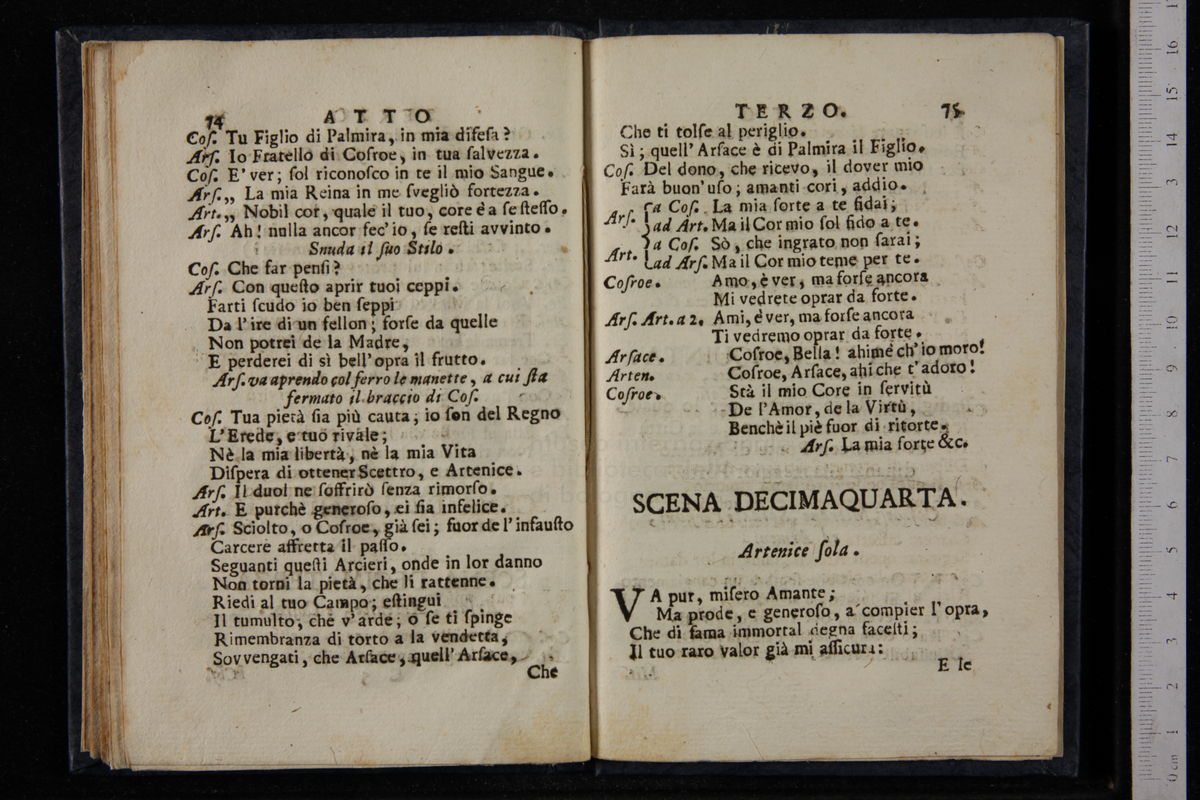 74 ATTO
Coſ. Tu Figlio di Palmira, in mia difeſa?
Arſ. Io Fratello di Coſroe, in tua ſalvezza.
Coſ. E' ver; ſol riconoſco in te il mio Sangue.
Arſ.„ La mia Reina in me ſvegliò fortezza.
Art.„ Nobil cor, quale il tuo, core è a ſe ſteſſo.
Arſ. Ah! nulla ancor fec'io, ſe reſti avvinto.
Snuda il ſuo Stilo.
Coſ. Che far penſi?
Arſ. Con queſto aprir tuoi ceppi.
Farti ſcudo io ben ſeppi
Da l'ire di un fellon; forſe da quelle
Non potrei de la Madre,
E perderei di sì bell'opra il frutto.
Arſ. va aprendo col ferro le manette, a cui ſta
fermato il braccio di Coſ.
Coſ. Tua pietà ſia più cauta; io ſon del Regno
L'Erede, e tuo rivale;
Nè la mia libertà, nè la mia Vita
Diſpera di ottener Scettro, e Artenice.
Arſ. Il duol ne ſoffrirò ſenza rimorſo.
Art. E purchè generoſo, ei ſia infelice.
Arſ. Sciolto, o Coſroe, già ſei; fuor de l'infauſto
Carcere affretta il paſſo.
Seguanti queſti Arcieri, onde in lor danno
Non torni la pietà, che li rattenne.
Riedi al tuo Campo; eſtingui
Il tumulto, che v'arde; o ſe ti ſpinge
Rimembranza di torto a la vendetta,
Sovvengati, che Arſace, quell'Arſace,
Che
TERZO. 75
Che ti tolſe al periglio.
Sì; quell'Arſace è di Palmira il Figlio.
Coſ. Del dono, che ricevo, il dover mio
Farà buon'uſo; amanti cori, addio.
Arſ. a Coſ. La mia ſorte a te fidai;
ad Art. Ma il Cor mio ſol fido a te.
Art. a Coſ. Sò, che ingrato non ſarai;
ad Arſ. Ma il Cor mio teme per te.
Coſroe. Amo, è ver, ma forſe ancora
Mi vedrete oprar da forte.
Arſ. Art. a 2. Ami, è ver, ma forſe ancora
Ti vedremo oprar da forte.
Arſace. Coſroe, Bella! ahimè ch'io moro!
Arten. Coſroe, Arſace, ahi che t'adoro!
Coſroe. Stà il mio Core in ſervitù
De l'Amor, de la Virtù,
Benchè il piè fuor di ritorte.
Arſ. La mia ſorte &c.
SCENA DECIMAQUARTA.
Artenice ſola.
VA pur, miſero Amante;
Ma prode, e generoſo, a compier l'opra,
Che di fama immortal degna faceſti;
Il tuo raro valor già mi aſſicura:
E ſe